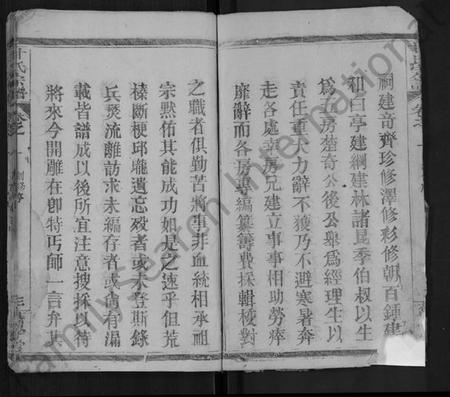 祠建音齊珍修澤修彩修朝百鍾建
和曰亭建綱建林諸爲季伯叔以生
爲五房楚奇公後公舉爲經理生以
責任重大力辭不獲乃不避寒暑奔
走各處幸房兄建立事事相助勞瘁
靡辭而各房專編纂籌費採輯校對
之職者俱勤苦將事非血統相承祖
宗默佑其能成功如是之速乎但荒
榛斷梗邱壠遺忘歿者或未登斯錄
兵燹流離訪求未編存者或膚有漏
載皆譜成以後所宜注意搜採以待
將來今開雕在卽特丐師一言弁其
氏宗譜